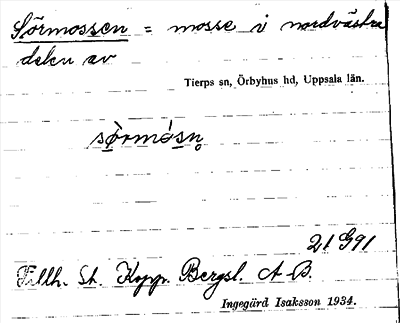 Sörmossen = mosse i nordvästra
delen av
Tierps sn, Örbyhus hd, Uppsala län.
sö̀rmósn̥
21 G91
Tillh. St. Kopp. Bergsl. A.B.
Ingegärd Isaksson 1934.